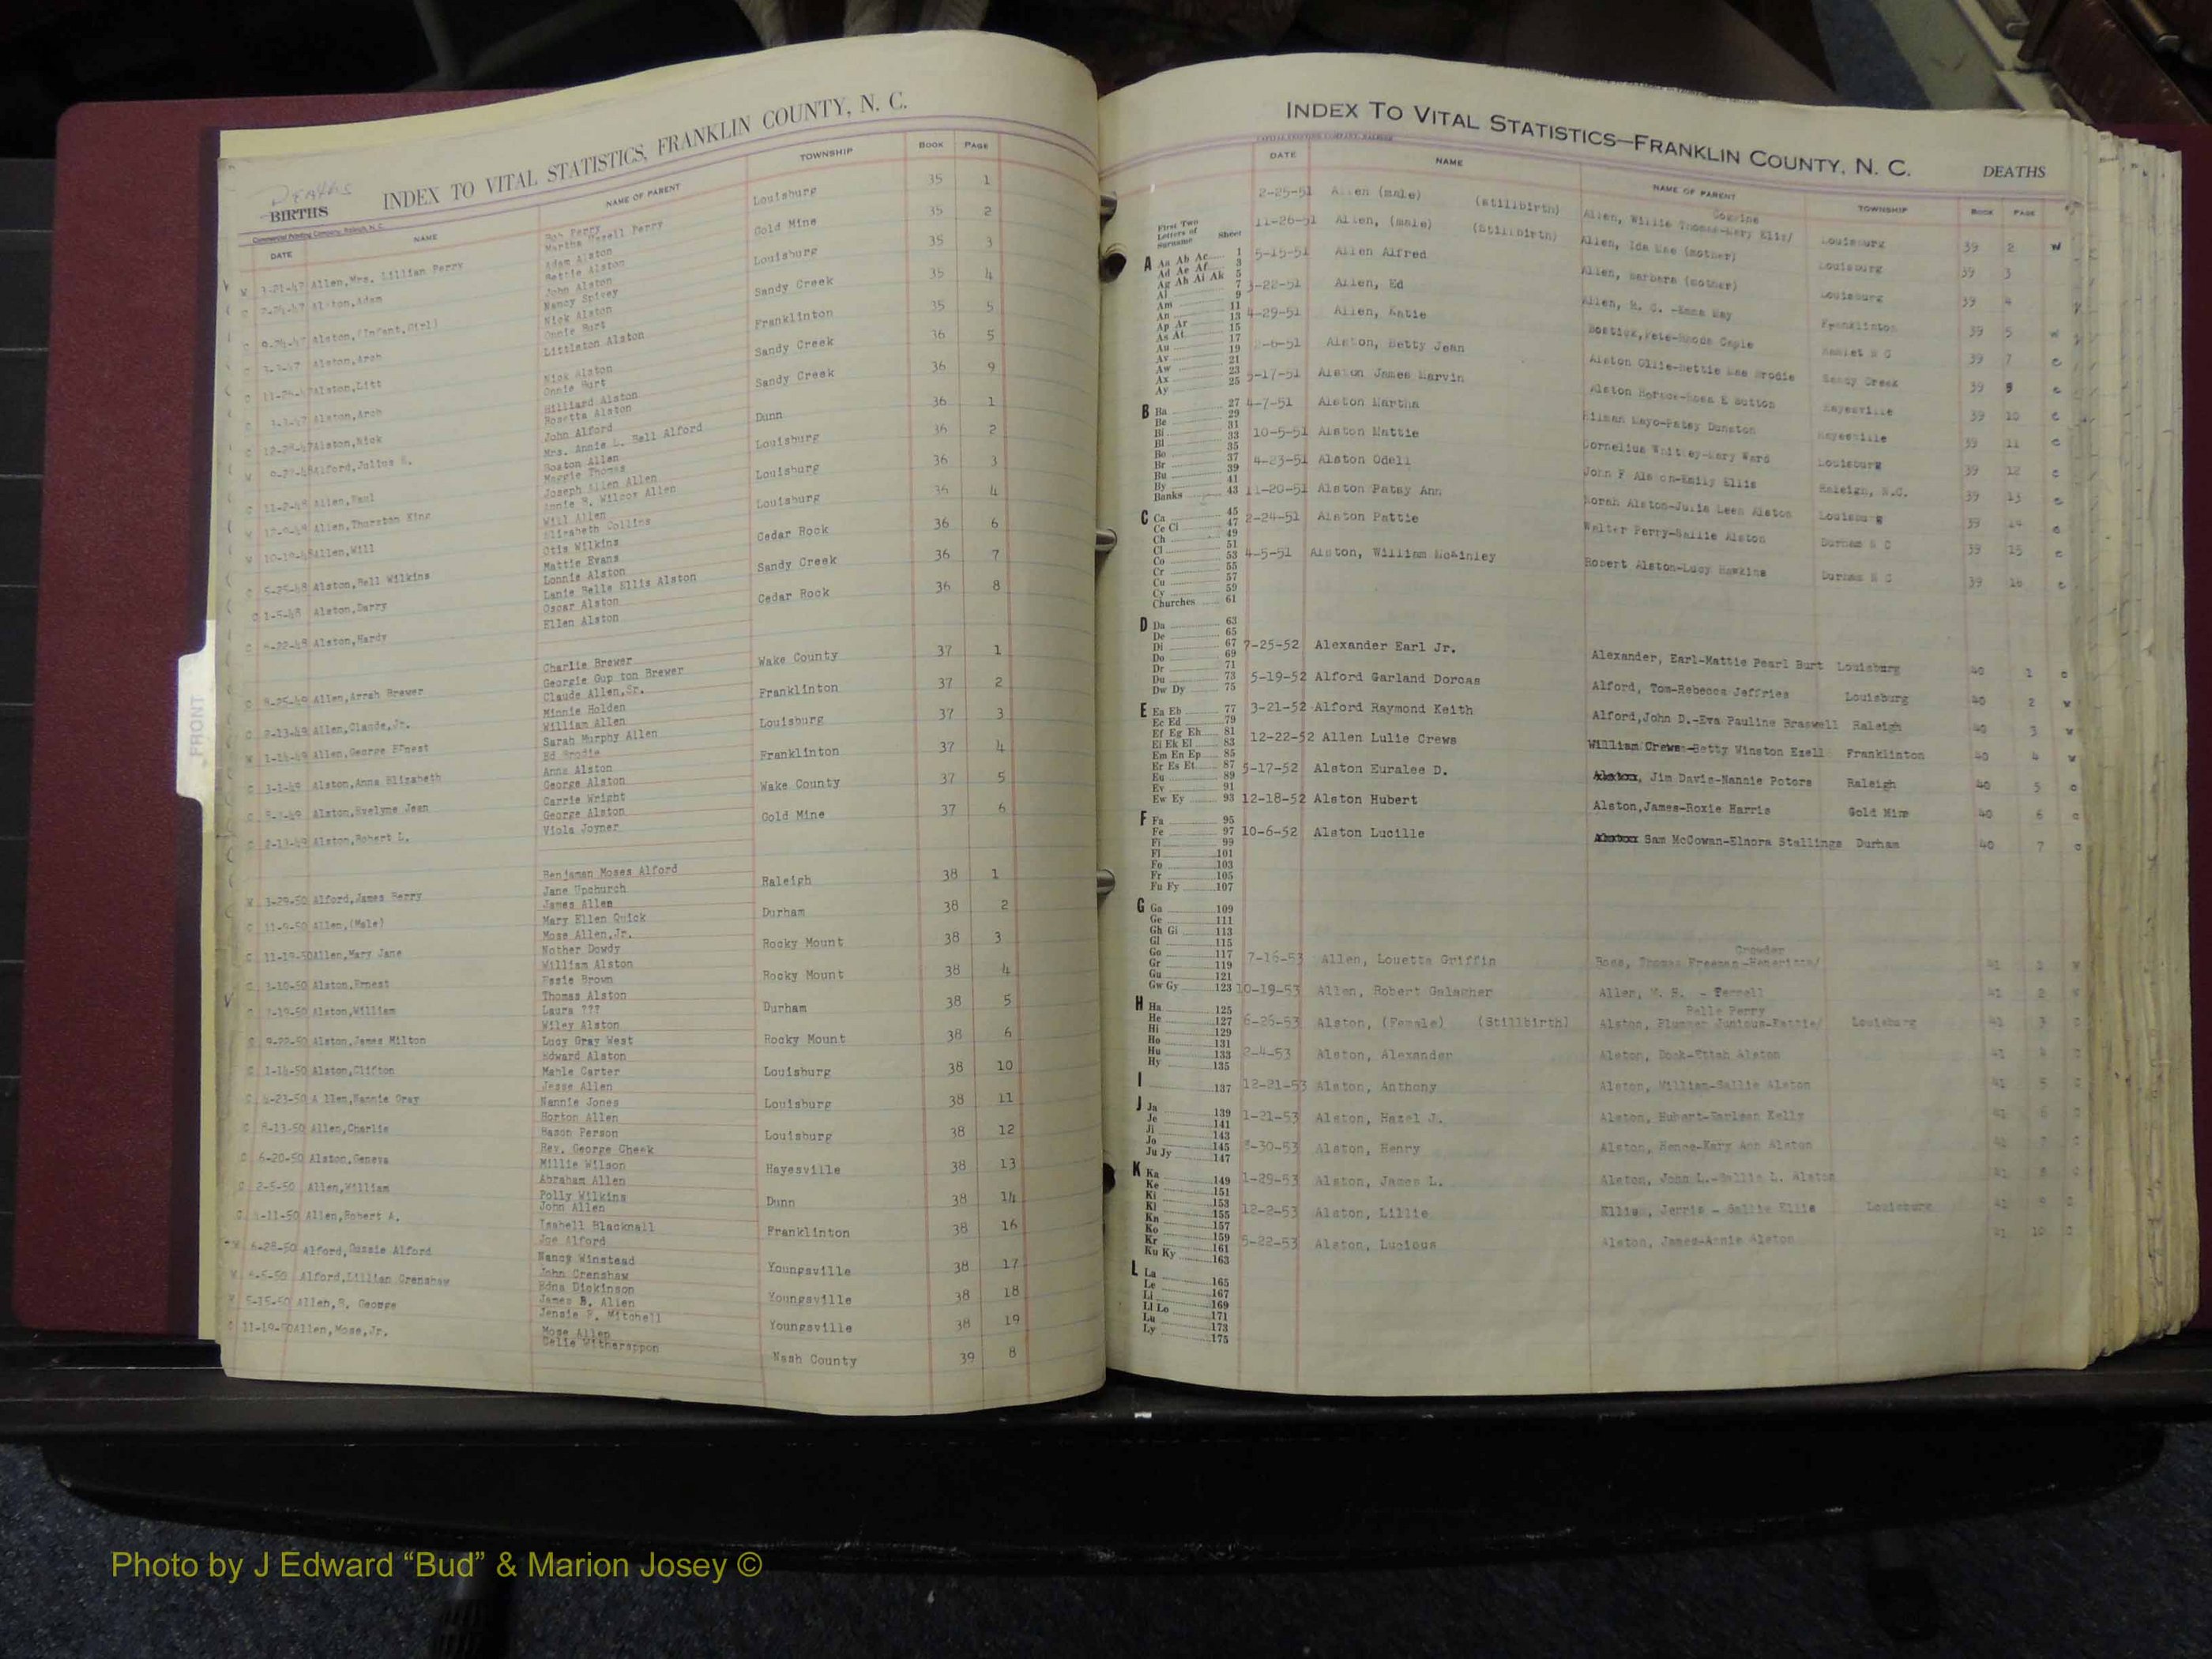 DEATHS
BIRTHS
INDEX TO VITAL STATISTICS, FRANKLIN COUNTY, N. C.
Commercial Printing Company, Raleigh, N. C.
DATE NAME NAME OF PARENT TOWNSHIP BOOK PAGE
W 3-21-47 Allen, Mrs. Lillian Perry Bob Perry Louisburg 35 1
Martha Uzzell Perry
Alston, Adam Adam Alston Gold Mine 35 2
Bettie Alston
Alston, (Infant, Girl) John Alston Louisburg 35 3
Nancy Spivey
Alston, Arch Nick Alston Sandy Creek 35 4
Onnie Burt
Alston, Litt Littleton Alston Franklinton 35 5
Alston, Arch Nick Alston Sandy Creek 36 5
Onnie Burt
Alston, Nick Hilliard Alston Sandy Creek 36 9
Rosetta Alston
Alford, Julius John Alford Dunn 36 1
Mrs. Annie L. Bell Alford
11-2-48 Allen, Paul Boston Allen Louisburg 36 2
Maggie Thomas
Allen, Thurston King Joseph Allen Allen Louisburg 36 3
Annie R. Wilcox Allen
10-19-48 Allen, Will Will Allen Louisburg 36 4
Elizabeth Collins
5-25-48 Alston, Bell Wilkins Otis Wilkins Cedar Rock 36 6
Mattie Evans
C 1-5-48 Alston, Darry Lonnie Alston Sandy Creek 36 7
Lanie Belle Ellis Alston
Alston, Hardy Oscar Alston Cedar Rock 36 8
Ellen Alston
8-25-49 Allen, Arrah Brewer Charlie Brewer Wake County 37 1
Georgie Gup ton Brewer
2-13-49 Allen, Claude, Jr. Claude Allen, Sr. Franklinton 37 2
Minnie Holden
W 1-14-49 Allen, George Ernest William Allen Louisburg 37 3
Sarah Murphy Allen
3-1-49 Alston, Anna Elizabeth Ed Brodie Franklinton 37 4
Anna Alston
Alston, Evelyne Jean George Alston Wake County 37 5
Carrie Wright
2-13-49 Alston, Robert L. George Alston Gold Mine 37 6
Viola Joyner
W 3-29-50 Alford, James Berry Benjaman Moses Alford Raleigh 38 1
Jane Upchurch
C 11-9-50 Allen, (Male) James Allen Durham 38 2
Mary Ellen Quick
C 11-19-50 Allen, Mary Jane Mose Allen, Jr. Rocky Mount 38 3
Nother Dowdy
3-10-50 Alston, Ernest William Alston Rocky Mount 38 4
Essie Brown
7-19-50 Alston, William Thomas Alston Durham 38 5
Laura ???
9-22-50 Alston, James Milton Wiley Alston Rocky Mount 38 6
Lucy Gray West
1-14-50 Alston, Clifton Edward Alston Louisburg 38 10
Mable Carter
4-23-50 A llen, Nannie Gray Jesse Allen Louisburg 38 11
Nannie Jones
8-13-50 Allen, Charlie Horton Allen Louisburg 38 12
Bason Person
C 6-20-50 Alston, Geneva Rev. George Cheek Hayesville 38 13
Millie Wilson
C 2-5-50 Allen, William Abraham Allen Dunn 38 14
Polly Wilkins
C -11-50 Allen, Robert A. John Allen Franklinton 38 16
Isabell Blacknall
W 6-28-50 Alford, Cussie Alford Joe Alford Youngsville 38 17
Nancy Winstead
W 6-5-50 Alford, Lillian Crenshaw John Crenshaw Youngsville 38 18
Edna Dickinson
W 5-15-50 Allen, B. George James B. Allen Youngsville 38 19
Jensie P. Mitchell
C 11-19-50 Allen, Mose, Jr. Mose Allen Nash County 39 8
Celie Withersppon
FRONT
INDEX TO VITAL STATISTICS—FRANKLIN COUNTY, N. C. DEATHS
DATE NAME NAME OF PARENT TOWNSHIP BOOK PAGE
2-25-51 Allen (male) (Stillbirth) Allen, Willie Thomas-Mary Eliz/ Louisburg 39 2 W
11-26-51 Allen, (male) (Stillbirth) Allen, Ida Mae (mother) Louisburg 39 3
5-15-51 Allen Alfred Allen, Barbara (mother) Louisburg 39 4
3-22-51 Allen, Ed Allen, R. C. -Emma May Franklinton 39 5 W
4-29-51 Allen, Katie Bostick, Pete-Rhoda Cagle Hamlet N C 39 7 C
-6-51 Alston, Betty Jean Alston Ollie-Bettie Mae Brodie Sandy Creek 39 9 C
5-17-51 Alston James Marvin Alston Horace-Rosa E Sutton Hayesville 39 10 C
4-7-51 Alston Martha Hilman Mayo-Patsy Dunston Hayesville 39 11 C
10-5-51 Alston Mattie Cornelius Whitley-Mary Ward Louisburg 39 12 C
4-23-51 Alston Odell John F Alston-Emily Ellis Raleigh, N.C. 39 13 C
11-20-51 Alston Patsy Ann Norah Alston-Julia Leen Alston Louisburg 39 14 C
2-24-51 Alston Pattie Walter Perry-Sallie Alston Durham N C 39 15 C
4-5-51 Alston, William McKinley Robert Alston-Lucy Hawkins Durham N C 39 16 C
7-25-52 Alexander Earl Jr. Alexander, Earl-Mattie Pearl Burt Louisburg 40 1 C
5-19-52 Alford Garland Dorcas Alford, Tom-Rebecca Jeffries Louisburg 40 2 W
3-21-52 Alford Raymond Keith Alford, John D.-Eva Pauline Braswell Raleigh 40 3 W
12-22-52 Allen Lulie Crews William Crews-Betty Winston Ezell Franklinton 40 4 W
5-17-52 Alston Euralee D. Jim Davis-Nannie Poters Raleigh 40 5 C
12-18-52 Alston Hubert Alston, James-Roxie Harris Gold Mine 40 6 C
10-6-52 Alston Lucille Sam McCowan-Elnora Stallings Durham 40 7 C
Crowder
7-16-53 Allen, Louetta Griffin Bass, Thomas Freeman-Henaritta/ 41 W
10-19-53 Allen, Robert Galagher Allen, M. H. - Terrell 41 2 W
Belle Perry
6-26-53 Alston, (Female) (Stillbirth) Alston, Plummer Junious-Hattie/ Louisburg 41 3 C
2-4-53 Alston, Alexander Alston, Cook-Ettah Alston 41 4 C
12-21-53 Alston, Anthony Alston, William-Sallie Alston 41 5 C
1-21-53 Alston, Hazel J. Alston, Hubert-Earleen Kelly 41 6 C
8-30-53 Alston, Henry Alston, Hence-Mary Ann Alston 41 7 C
1-29-53 Alston, James L. Alston, John L.-Sallie L. Alston 41 8 C
12-2-53 Alston, Lillie Ellis, Jerris - Sallie Ellis Louisburg 41 9 C
5-22-53 Alston, Lucious Alston, James-Annie Alston 41 10 C
First Two
Letters of
Surname Sheet
A Aa Ab Ac 1
Ad Ae Af 3
Ag Ah Ai Ak 5
Al 7
Am 9
An 11
Ap Ar 13
As At 15
Au 17
Av 19
Aw 21
Ax 23
Ay 25
B Ba 27
Be 29
Bi 31
Bl 33
Bo 35
Br 37
Bu 39
By 41
Banks 43
C Ca 45
Ce Ci 47
Ch 49
Cl 51
Co 53
Cr 55
Cu 57
Cy 59
Churches 61
D Da 63
De 65
Di 67
Do 69
Dr 71
Du 73
Dw Dy 75
E Ea Eb 77
Ec Ed 79
Ef Eg Eh 81
Ei Ek El 83
Em En Ep 85
Er Es Et 87
Eu 89
Ev 91
Ew Ey 93
F Fa 95
Fe 97
Fi 99
Fl 101
Fo 103
Fr 105
Fu Fy 107
G Ga 109
Ge 111
Gh Gi 113
Gl 115
Go 117
Gr 119
Gu 121
Gw Gy 123
H Ha 125
He 127
Hi 129
Ho 131
Hu 133
Hy 135
I 137
J Ja 139
Je 141
Ji 143
Jo 145
Ju Jy 147
K Ka 149
Ke 151
Ki 153
Kl 155
Kn 157
Ko 159
Kr 161
Ku Ky 163
L La 165
Le 167
Li 169
Ll Lo 171
Lu 173
Ly 175
Photo by J Edward “Bud” & Marion Josey ©